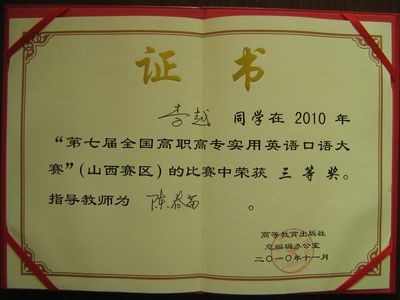 证书
李越 同学在 2010 年
“第七届全国高职高专实用英语口语大
赛”(山西赛区)的比赛中荣获 三等奖。
指导教师为 陈春苗 。
高等教育出版社
总编辑办公室
二〇一〇年十一月